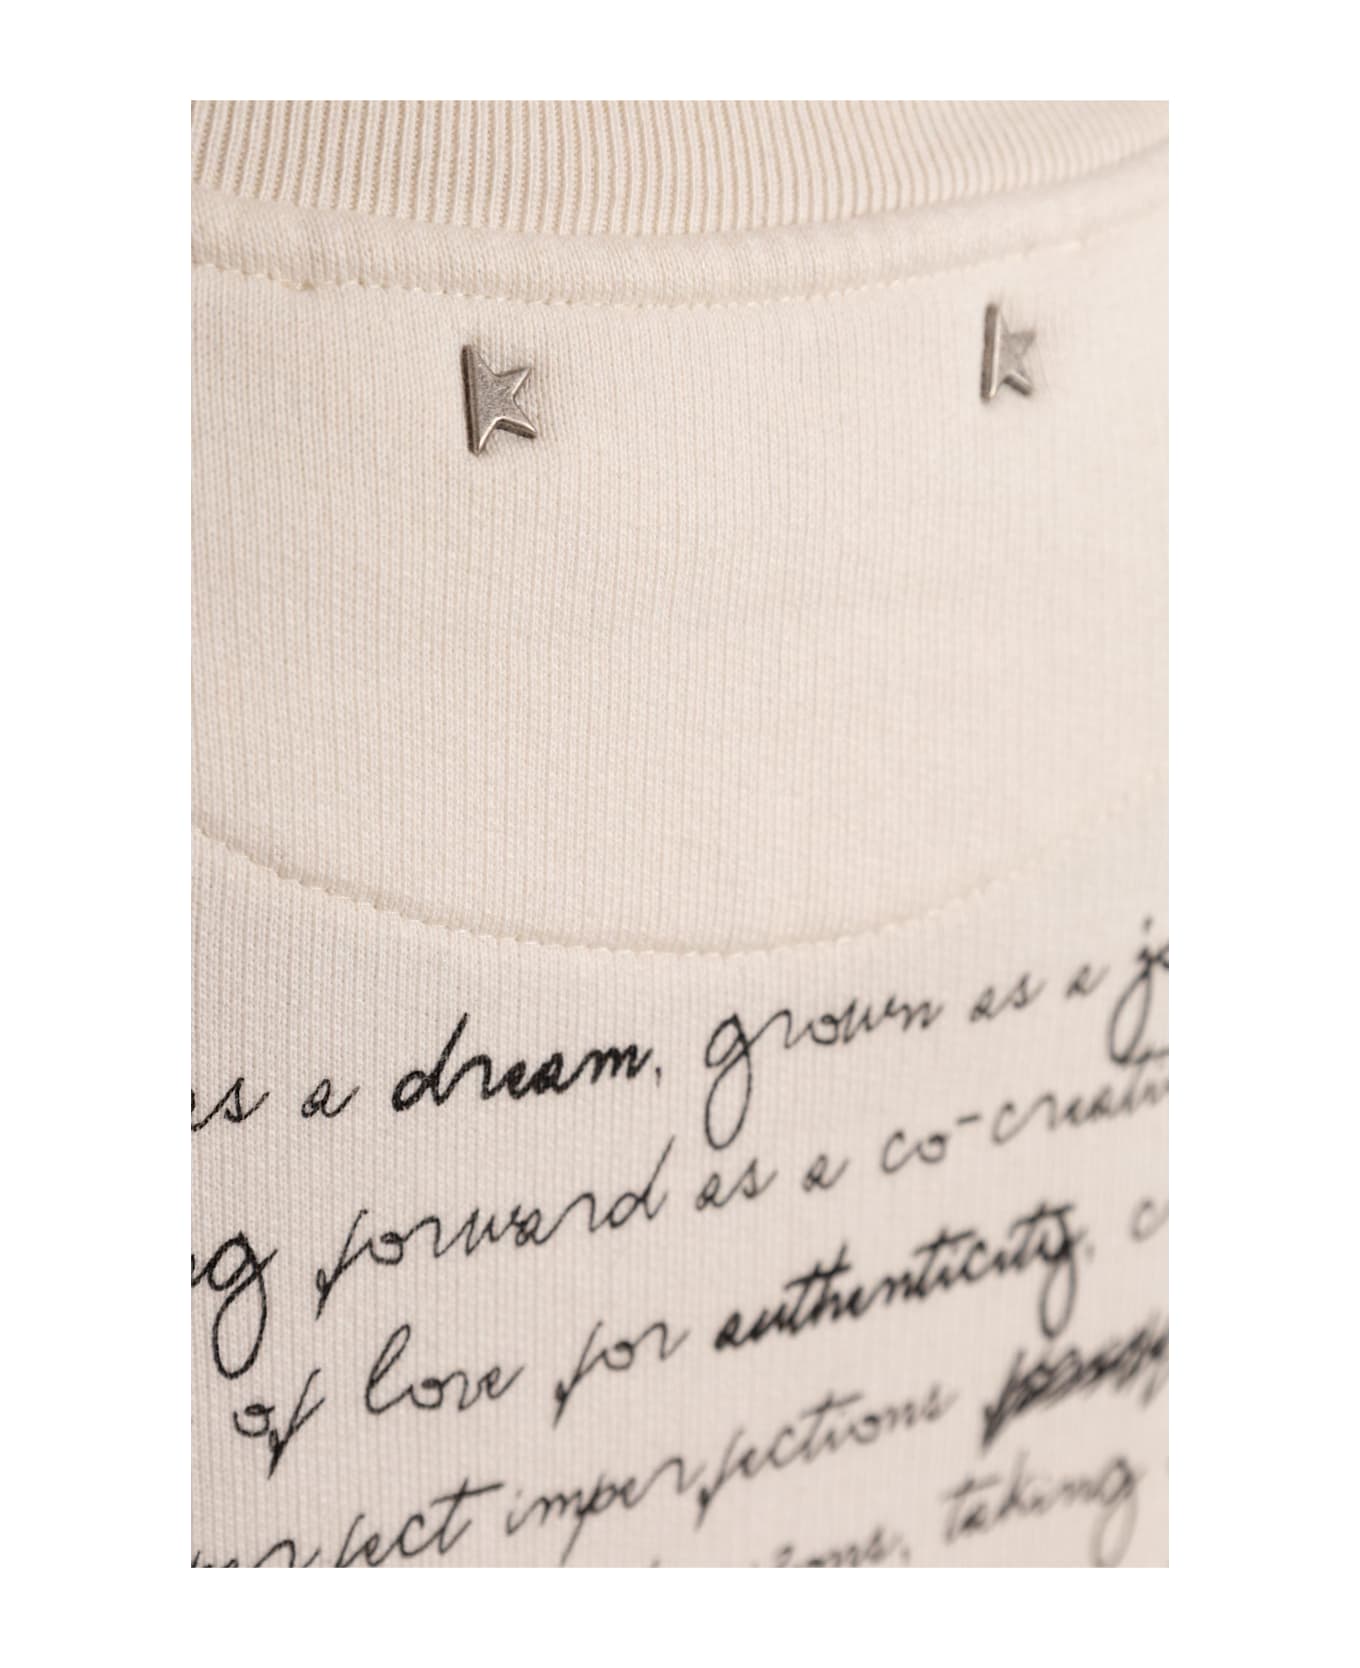 as a dream, grown as a jo
ng forward as a co-creati
of love for authenticity, c
perfect imperfections
taking